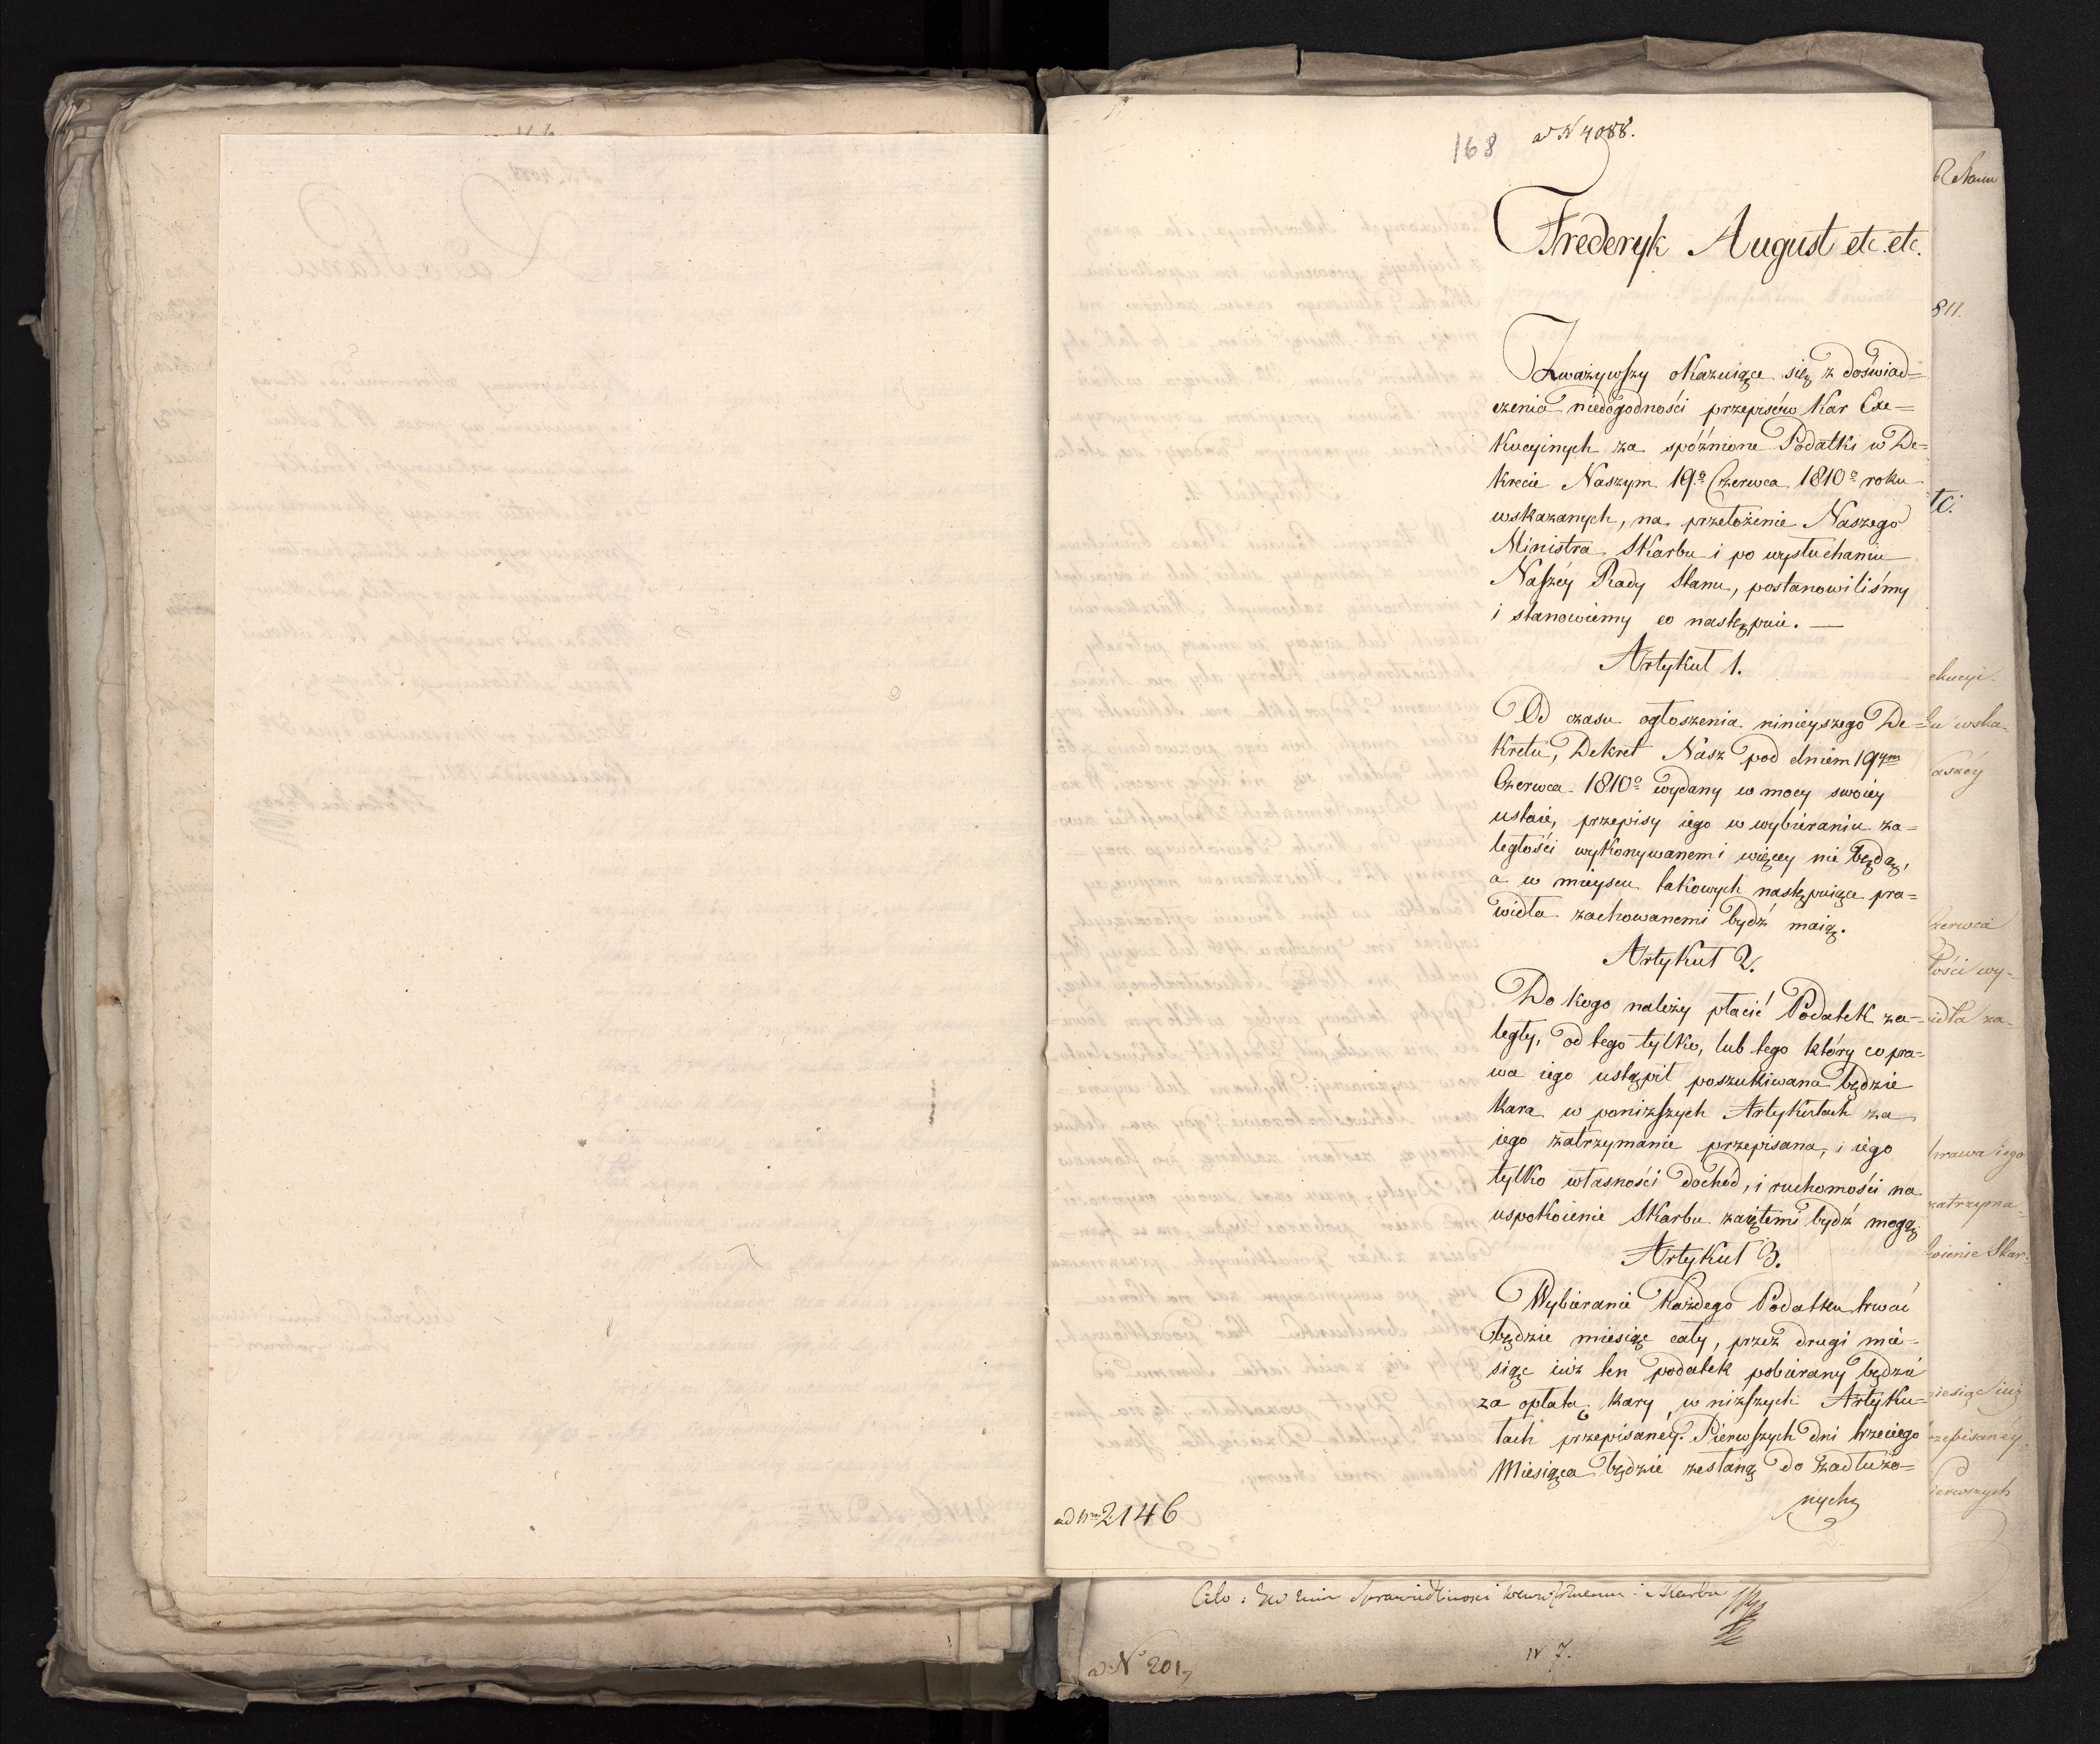 168
ad N 4088.
Frederyk August etc. etc.
Zważywſzy okazuiące się z doświad=
czenia niedogodności przepisów Kar Exe=
kucyinych za spóźnione Podatki w De=
krecie Naszym 19º Czerwca 1810º roku
wskazanych, na przełożenie Naszego
Ministra Skarbu i po wysłuchaniu
Naſzéy Rady Stanu, postanowiliśmy
i stanowiemy co następuie. —
Artykuł 1.
Od czasu ogłoszenia ninieyszego De=
kretu, Dekret Nasz pod dniem 19ym
Czerwca 1810º wydany w mocy swoiey
ustaie, przepisy iego w wybieraniu za=
ległości wykonywanemi więcey nie będą,
a w mieyscu takowych następuiące pra=
widła zachowanemi bydź maią.
Artykuł 2.
Do kogo należy płacić Podatek za=
legły, od tego tylko, lub tego który co pra=
wa iego ustąpił poszukiwana będzie
kara w poniżſzych Artykułach za
iego zatrzymanie przepisana, i iego
tylko własności dochód, i ruchomości na
uspokoienie Skarbu zaiętemi bydź mogą.
Artykuł 3.
Wybieranie każdego Podatku trwać
będzie miesiąc cały, przez drugi mie=
siąc iuż ten podatek pobierany będzie
za opłatą kary, w niżſzych Artyku=
łach przepisanéy. Pierwſzych dni trzeciego
Miesiąca będzie zesłaną do Zadłużo=
nych
ad Nrm 2146
R Stanu
811.
tc.
ekucyi.
u wska-
aszey
Czerwca
łości wy-
idła za-
prawa iego
zatrzyma-
oienie Skar-
iesiąc iuż
rzepisaney.
ierwszych
Sprawiedliwości i Skarbu
N 7.
ad N 201